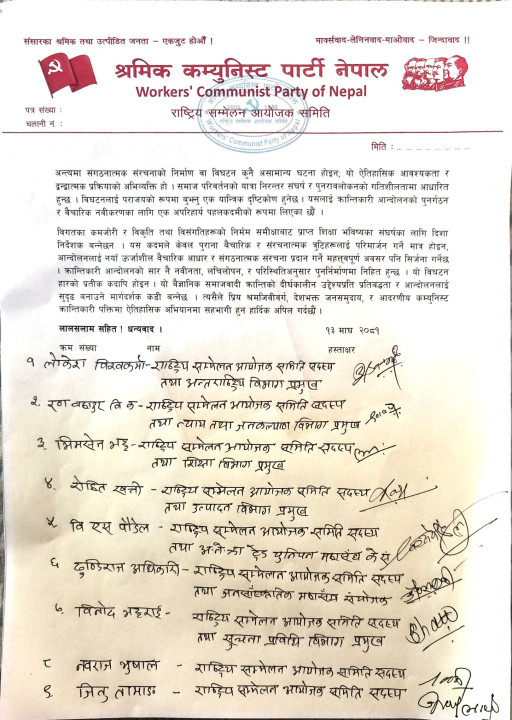 संसारका श्रमिक तथा उत्पीडित जनता – एकजुट होऔं !
मार्क्सवाद-लेनिनवाद-माओवाद – जिन्दावाद !!
श्रमिक कम्युनिस्ट पार्टी नेपाल
Workers' Communist Party of Nepal
राष्ट्रिय सम्मेलन आयोजक समिति
पत्र संख्या :
चलानी नं. :
मिति : ........................
अन्त्यमा संगठनात्मक संरचनाको निर्माण वा विघटन कुनै असामान्य घटना होइन; यो ऐतिहासिक आवश्यकता र
द्वन्द्वात्मक प्रक्रियाको अभिव्यक्ति हो । समाज परिवर्तनको यात्रा निरन्तर संघर्ष र पुनरावलोकनको गतिशीलतामा आधारित
हुन्छ । विघटनलाई पराजयको रूपमा बुझ्नु एक यान्त्रिक दृष्टिकोण हुनेछ । यसलाई क्रान्तिकारी आन्दोलनको पुनर्गठन
र वैचारिक नवीकरणका लागि एक अपरिहार्य पहलकदमीको रूपमा लिएका छौं ।
विगतका कमजोरी र विकृति तथा विसंगतिहरूको निर्मम समीक्षाबाट प्राप्त शिक्षा भविष्यका संघर्षका लागि दिशा
निर्देशक बन्नेछन । यस कदमले केवल पुराना वैचारिक र संरचनात्मक त्रुटिहरूलाई परिमार्जन गर्ने मात्र होइन,
आन्दोलनलाई नयाँ ऊर्जाशील वैचारिक आधार र संगठनात्मक संरचना प्रदान गर्ने महत्त्वपूर्ण अवसर पनि सिर्जना गर्नेछ
। क्रान्तिकारी आन्दोलनको सार नै नवीनता, लचिलोपन, र परिस्थितिअनुसार पुनर्निर्माणमा निहित हुन्छ । यो विघटन
हारको प्रतीक कदापि होइन । यो वैज्ञानिक समाजवादी क्रान्तिको दीर्घकालीन उद्देश्यप्रति प्रतिबद्धता र आन्दोलनलाई
सुदृढ बनाउने मार्गदर्शक कडी बन्नेछ । त्यसैले प्रिय श्रमजिवीवर्ग, देशभक्त जनसमुदाय, र आदरणीय कम्युनिस्ट
क्रान्तिकारी पक्तिमा ऐतिहासिक अभियानमा सहभागी हुन हार्दिक अपिल गर्दछौं ।
लालसलाम सहित ! धन्यवाद ।
१३ माघ २०८१
क्रम संख्या नाम हस्ताक्षर
१ लोकेश विश्वकर्मा - राष्ट्रिय सम्मेलन आयोजक समिति सदस्य
तथा अन्तर्राष्ट्रिय विभाग प्रमुख
२. रण बहादुर वि क - राष्ट्रिय सम्मेलन आयोजक समिति सदस्य
तथा न्याय तथा जनकल्याण विभाग प्रमुख
३. भिमसेन भट्ट - राष्ट्रिय सम्मेलन आयोजक समिति सदस्य
तथा शिक्षा विभाग प्रमुख
४. रोहित खत्री - राष्ट्रिय सम्मेलन आयोजक समिति सदस्य
तथा उत्पादन विभाग प्रमुख
५ वि एस पौडेल - राष्ट्रिय सम्मेलन आयोजक समिति सदस्य
तथा ट्रेड युनियन महासंघ
६ ढुण्डिराज अधिकारी - राष्ट्रिय सम्मेलन आयोजक समिति सदस्य
तथा जनसांस्कृतिक महासंघ संयोजक
७. विनोद भट्टराई - राष्ट्रिय सम्मेलन आयोजक समिति सदस्य
तथा सुचना प्रविधि विभाग प्रमुख
८ नवराज भुषाल - राष्ट्रिय सम्मेलन आयोजक समिति सदस्य
९. जितु तामाङ - राष्ट्रिय सम्मेलन आयोजक समिति सदस्य